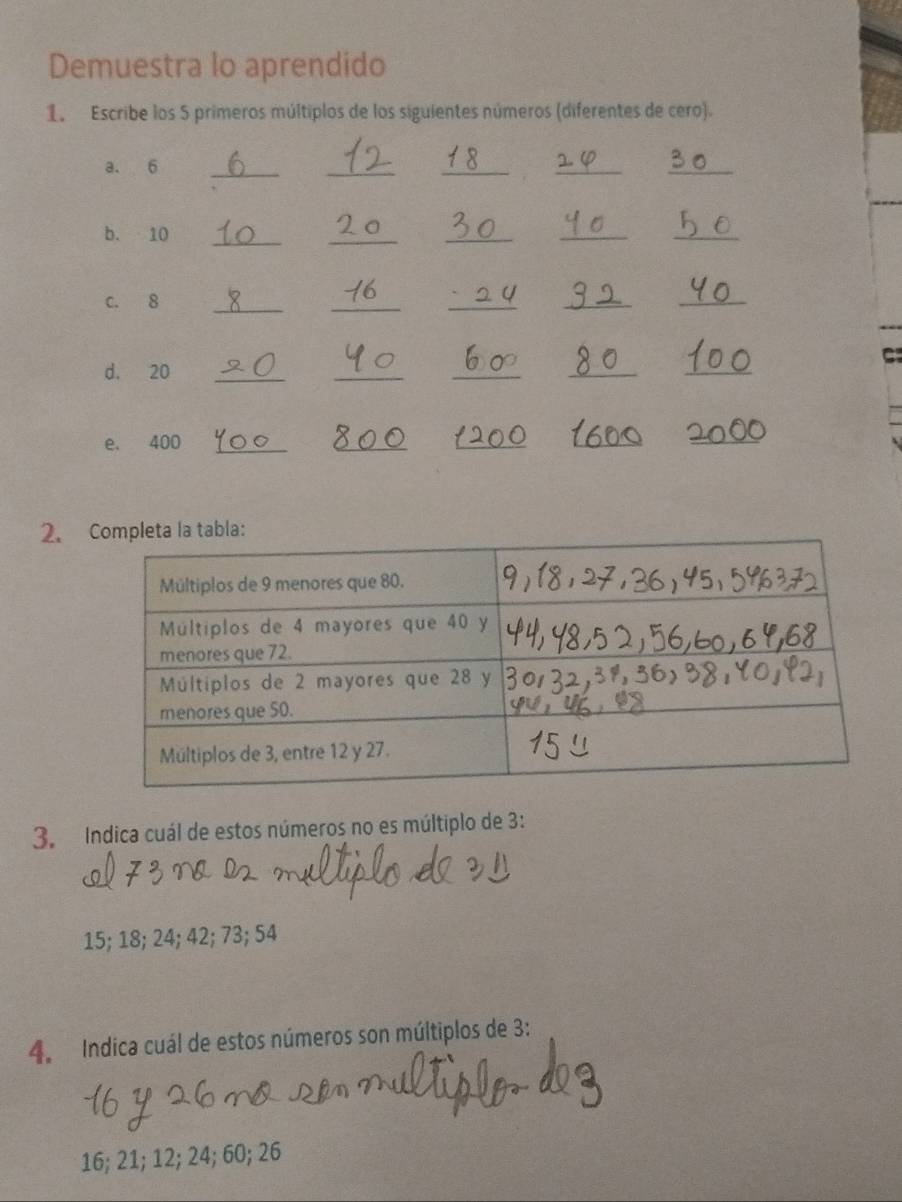 Demuestra lo aprendido
1. Escribe los 5 primeros múltiplos de los siguientes números (diferentes de cero).
a. 6 6 12 18 24 30
b. 10 10 20 30 40 50
c. 8 8 16 24 32 40
d. 20 20 40 600 80 100
e. 400 400 800 1200 1600 2000
2. Completa la tabla:
Múltiplos de 9 menores que 80. 9, 18, 27, 36, 45, 54, 63, 72
Múltiplos de 4 mayores que 40 y 44, 48, 52, 56, 60, 64, 68
menores que 72.
Múltiplos de 2 mayores que 28 y 30, 32, 34, 36, 38, 40, 42,
menores que 50. 44, 46, 48
Múltiplos de 3, entre 12 y 27. 15
3. Indica cuál de estos números no es múltiplo de 3:
el 73 no es multiplo de 3
15; 18; 24; 42; 73; 54
4. Indica cuál de estos números son múltiplos de 3:
16 y 26 no son multiplos de 3
16; 21; 12; 24; 60; 26